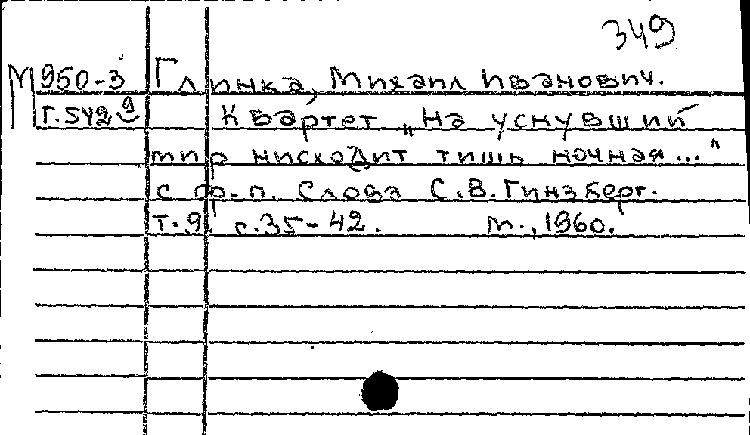 349
М 950-3 Глинка, Михаил Иванович.
Г.542 9 Квартет „На уснувший
мир нисходит тишь ночная..."
с ф.-п. Слова С.В. Гинзберг.
Т.9. с.35-42. М., 1960.